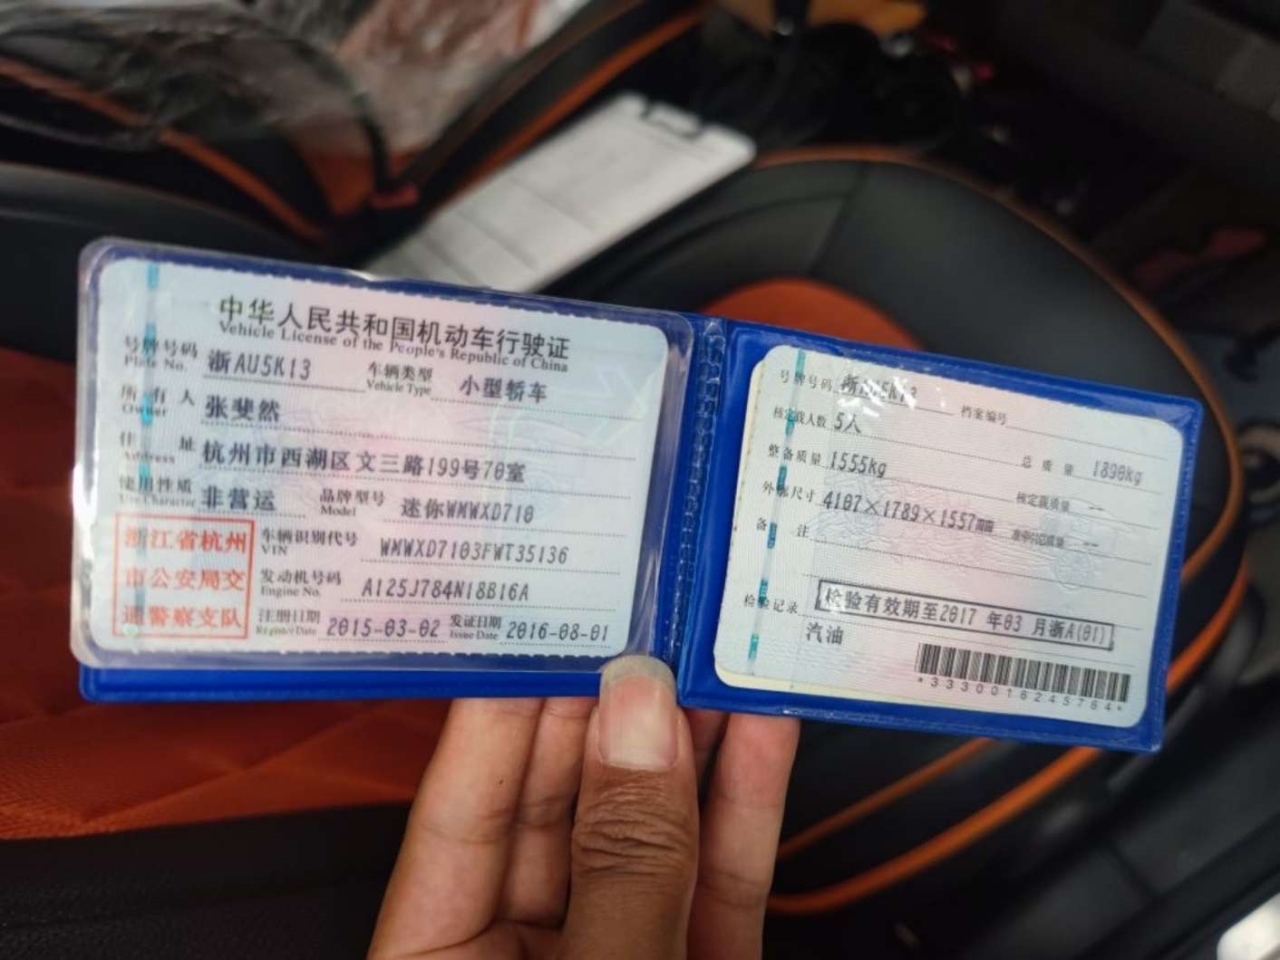 中华人民共和国机动车行驶证
Vehicle License of the People's Republic of China
号牌号码 Plate No. 浙AU5K13 车辆类型 Vehicle Type 小型轿车
所有人 Owner 张斐然
住址 Address 杭州市西湖区文三路199号70室
使用性质 Use Character 非营运 品牌型号 Model 迷你WMWXD710
浙江省杭州
市公安局交
通警察支队
车辆识别代号 VIN WMWXD7103FWT35136
发动机号码 Engine No. A125J784N18B16A
注册日期 Register Date 2015-03-02 发证日期 Issue Date 2016-08-01
号牌号码 浙AU5K13 档案编号
核定载人数 5人 总质量 1890kg
整备质量 1555kg 核定载质量 --
外廓尺寸 4107×1789×1557mm 准牵引总质量 --
备注
检验记录 检验有效期至2017年03月浙A(01)
汽油
*3330016245764*